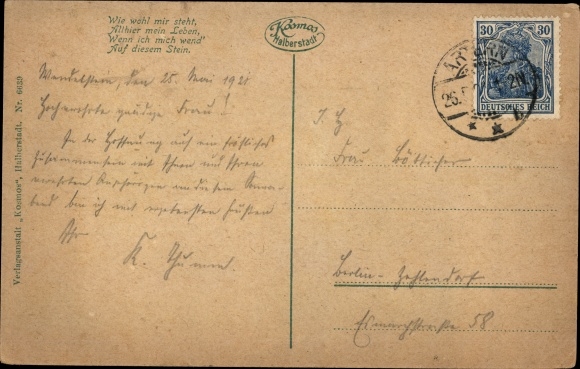 Wie wohl mir steht,
Allhier mein Leben,
Wenn ich mich wend'
Auf diesem Stein.
Kosmos
Halberstadt
Verlagsanstalt „Kosmos", Halberstadt. Nr. 6639
Wendelstein, den 25. Mai 1921
Hochverehrte gnädige Frau!
In der Hoffnung auf ein fröhliches
Zusammensein mit Ihnen und Ihren
bin ich mit ergebensten Grüßen
Ihr
K.
I. H.
Frau Böttcher
Berlin-Zehlendorf
Esmarchstraße 58
30 30
DEUTSCHES REICH
26.5